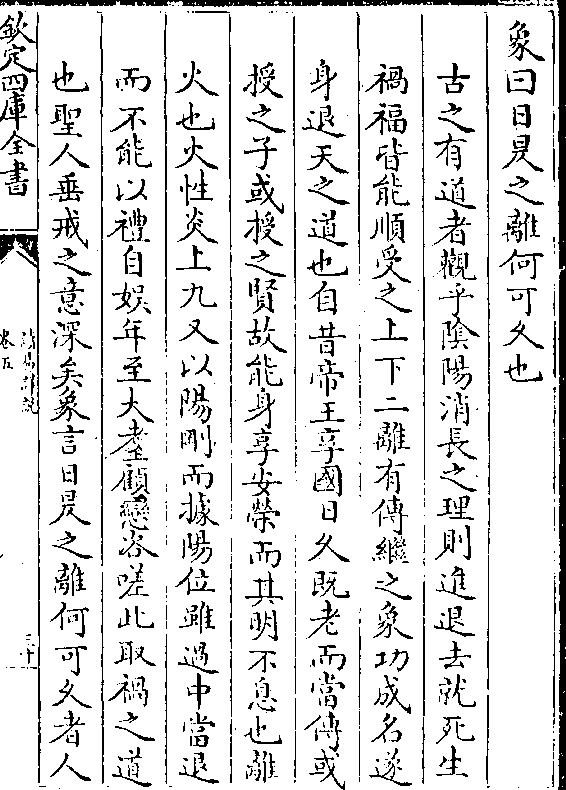 象曰日昃之離何可久也
古之有道者觀乎陰陽消長之理則進退去就死生
禍福皆能順受之上下二離有傳繼之象功成名遂
身退天之道也自昔帝王享國日久既老而當傳或
授之子或授之賢故能身享安榮而其明不息也離
火也火性炎上九又以陽剛而據陽位雖過中當退
而不能以禮自娱年至大耋顧戀咨嗟此取禍之道
也聖人垂戒之意深矣象言日昃之離何可久者人
欽定四庫全書
讀易詳說
卷五
三十